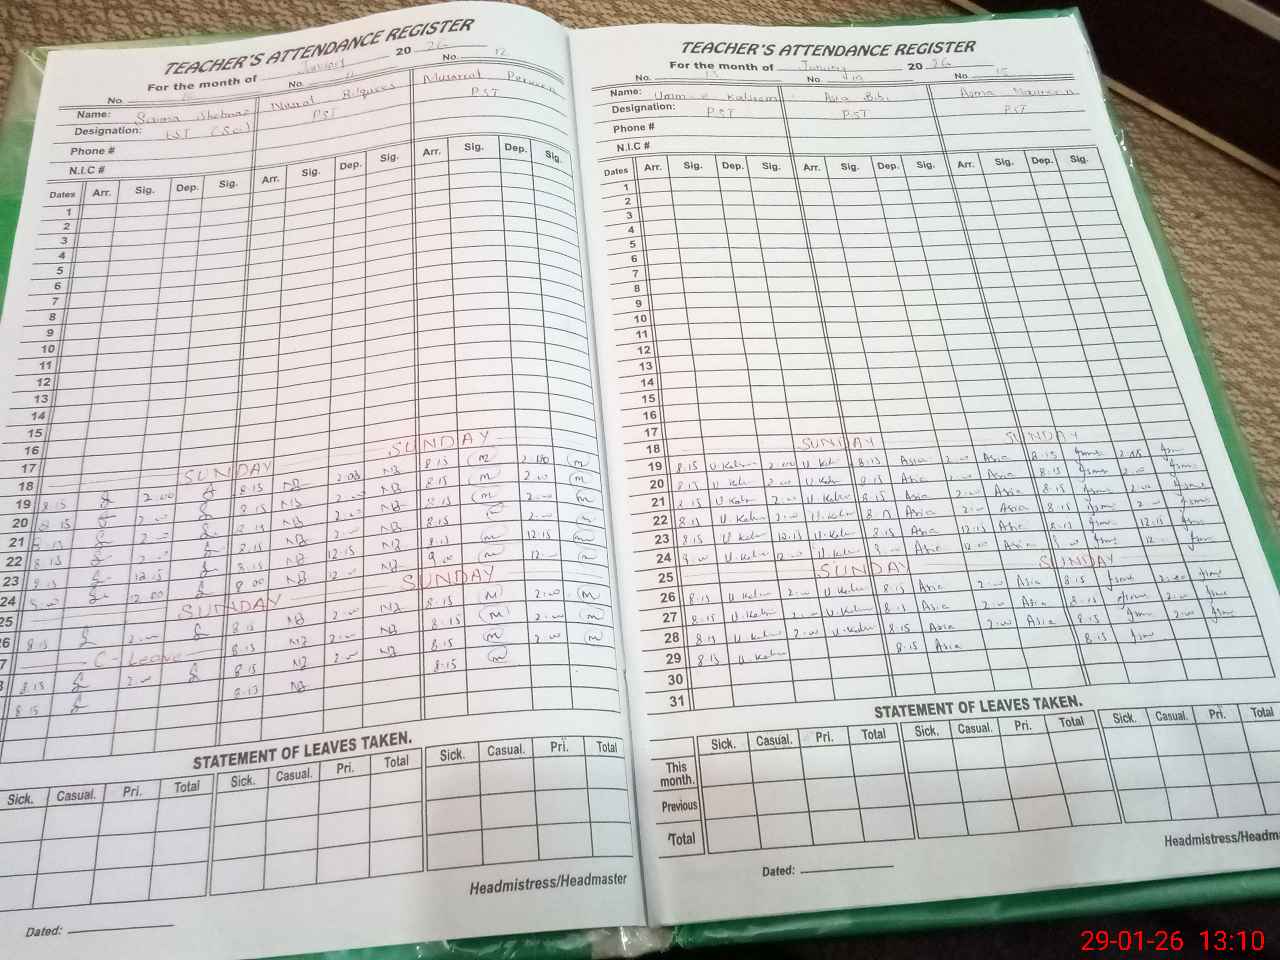 TEACHER'S ATTENDANCE REGISTER
For the month of January 20 26
No. No. 11 No. 12
Name: Shehnaz Bilquees Musarrat Perveen
Designation: EST (Sci) PST PST
Phone #
N.I.C #
Dates Arr. Sig. Dep. Sig. Arr. Sig. Dep. Sig. Arr. Sig. Dep. Sig.
1
2
3
4
5
6
7
8
9
10
11
12
13
14
15
16
17
18 SUNDAY SUNDAY
19 8.15 2.00 8.15 NB 2.00 NB 8.15 m 2.00 m
20 8.15 2.00 8.15 NB 2.00 NB 8.15 m 2.00 m
21 8.15 2.00 8.15 NB 2.00 NB 8.15 m 2.00 m
22 8.15 2.00 8.15 NB 2.00 NB 8.15 m 2.00 m
23 8.15 12.15 8.15 NB 12.15 NB 8.15 m 12.15 m
24 9.00 12.00 8.00 NB 12.00 NB 9.00 m 12.00 m
25 SUNDAY SUNDAY
26 8.15 2.00 8.15 NB 2.00 NB 8.15 m 2.00 m
7 C-Leave 8.15 NB 2.00 NB 8.15 m 2.00 m
8.15 2.00 8.15 NB 2.00 NB 8.15 m 2.00 m
8.15 8.15 NB 8.15 m
STATEMENT OF LEAVES TAKEN.
Sick. Casual. Pri. Total Sick. Casual. Pri. Total Sick. Casual. Pri. Total
Headmistress/Headmaster
Dated:
TEACHER'S ATTENDANCE REGISTER
For the month of January 20 26
No. 13 No. 14 No. 15
Name: Umm-e-Kalsoom Asia Bibi Asma Naureen
Designation: PST PST PST
Phone #
N.I.C #
Dates Arr. Sig. Dep. Sig. Arr. Sig. Dep. Sig. Arr. Sig. Dep. Sig.
1
2
3
4
5
6
7
8
9
10
11
12
13
14
15
16
17
18 SUNDAY SUNDAY
19 8.15 U.Kalsm 2.00 U.Kalsm 8.15 Asia 2.00 Asia 8.15 Asma 2.00 Asma
20 8.15 U.Kalsm 2.00 U.Kalsm 8.15 Asia 2.00 Asia 8.15 Asma 2.00 Asma
21 8.15 U.Kalsm 2.00 U.Kalsm 8.15 Asia 2.00 Asia 8.15 Asma 2.00 Asma
22 8.15 U.Kalsm 2.00 U.Kalsm 8.15 Asia 2.00 Asia 8.15 Asma 2.00 Asma
23 8.15 U.Kalsm 12.15 U.Kalsm 8.15 Asia 12.15 Asia 8.15 Asma 12.15 Asma
24 9.00 U.Kalsm 12.00 U.Kalsm 9.00 Asia 12.00 Asia 9.00 Asma 12.00 Asma
25 SUNDAY SUNDAY
26 8.15 U.Kalsm 2.00 U.Kalsm 8.15 Asia 2.00 Asia 8.15 Asma 2.00 Asma
27 8.15 U.Kalsm 2.00 U.Kalsm 8.15 Asia 2.00 Asia 8.15 Asma 2.00 Asma
28 8.15 U.Kalsm 2.00 U.Kalsm 8.15 Asia 2.00 Asia 8.15 Asma 2.00 Asma
29 8.15 U.Kalsm 8.15 Asia 8.15 Asma
30
31
STATEMENT OF LEAVES TAKEN.
Sick. Casual. Pri. Total Sick. Casual. Pri. Total Sick. Casual. Pri. Total
This month.
Previous
Total
Headmistress/Headm
Dated:
29-01-26 13:10